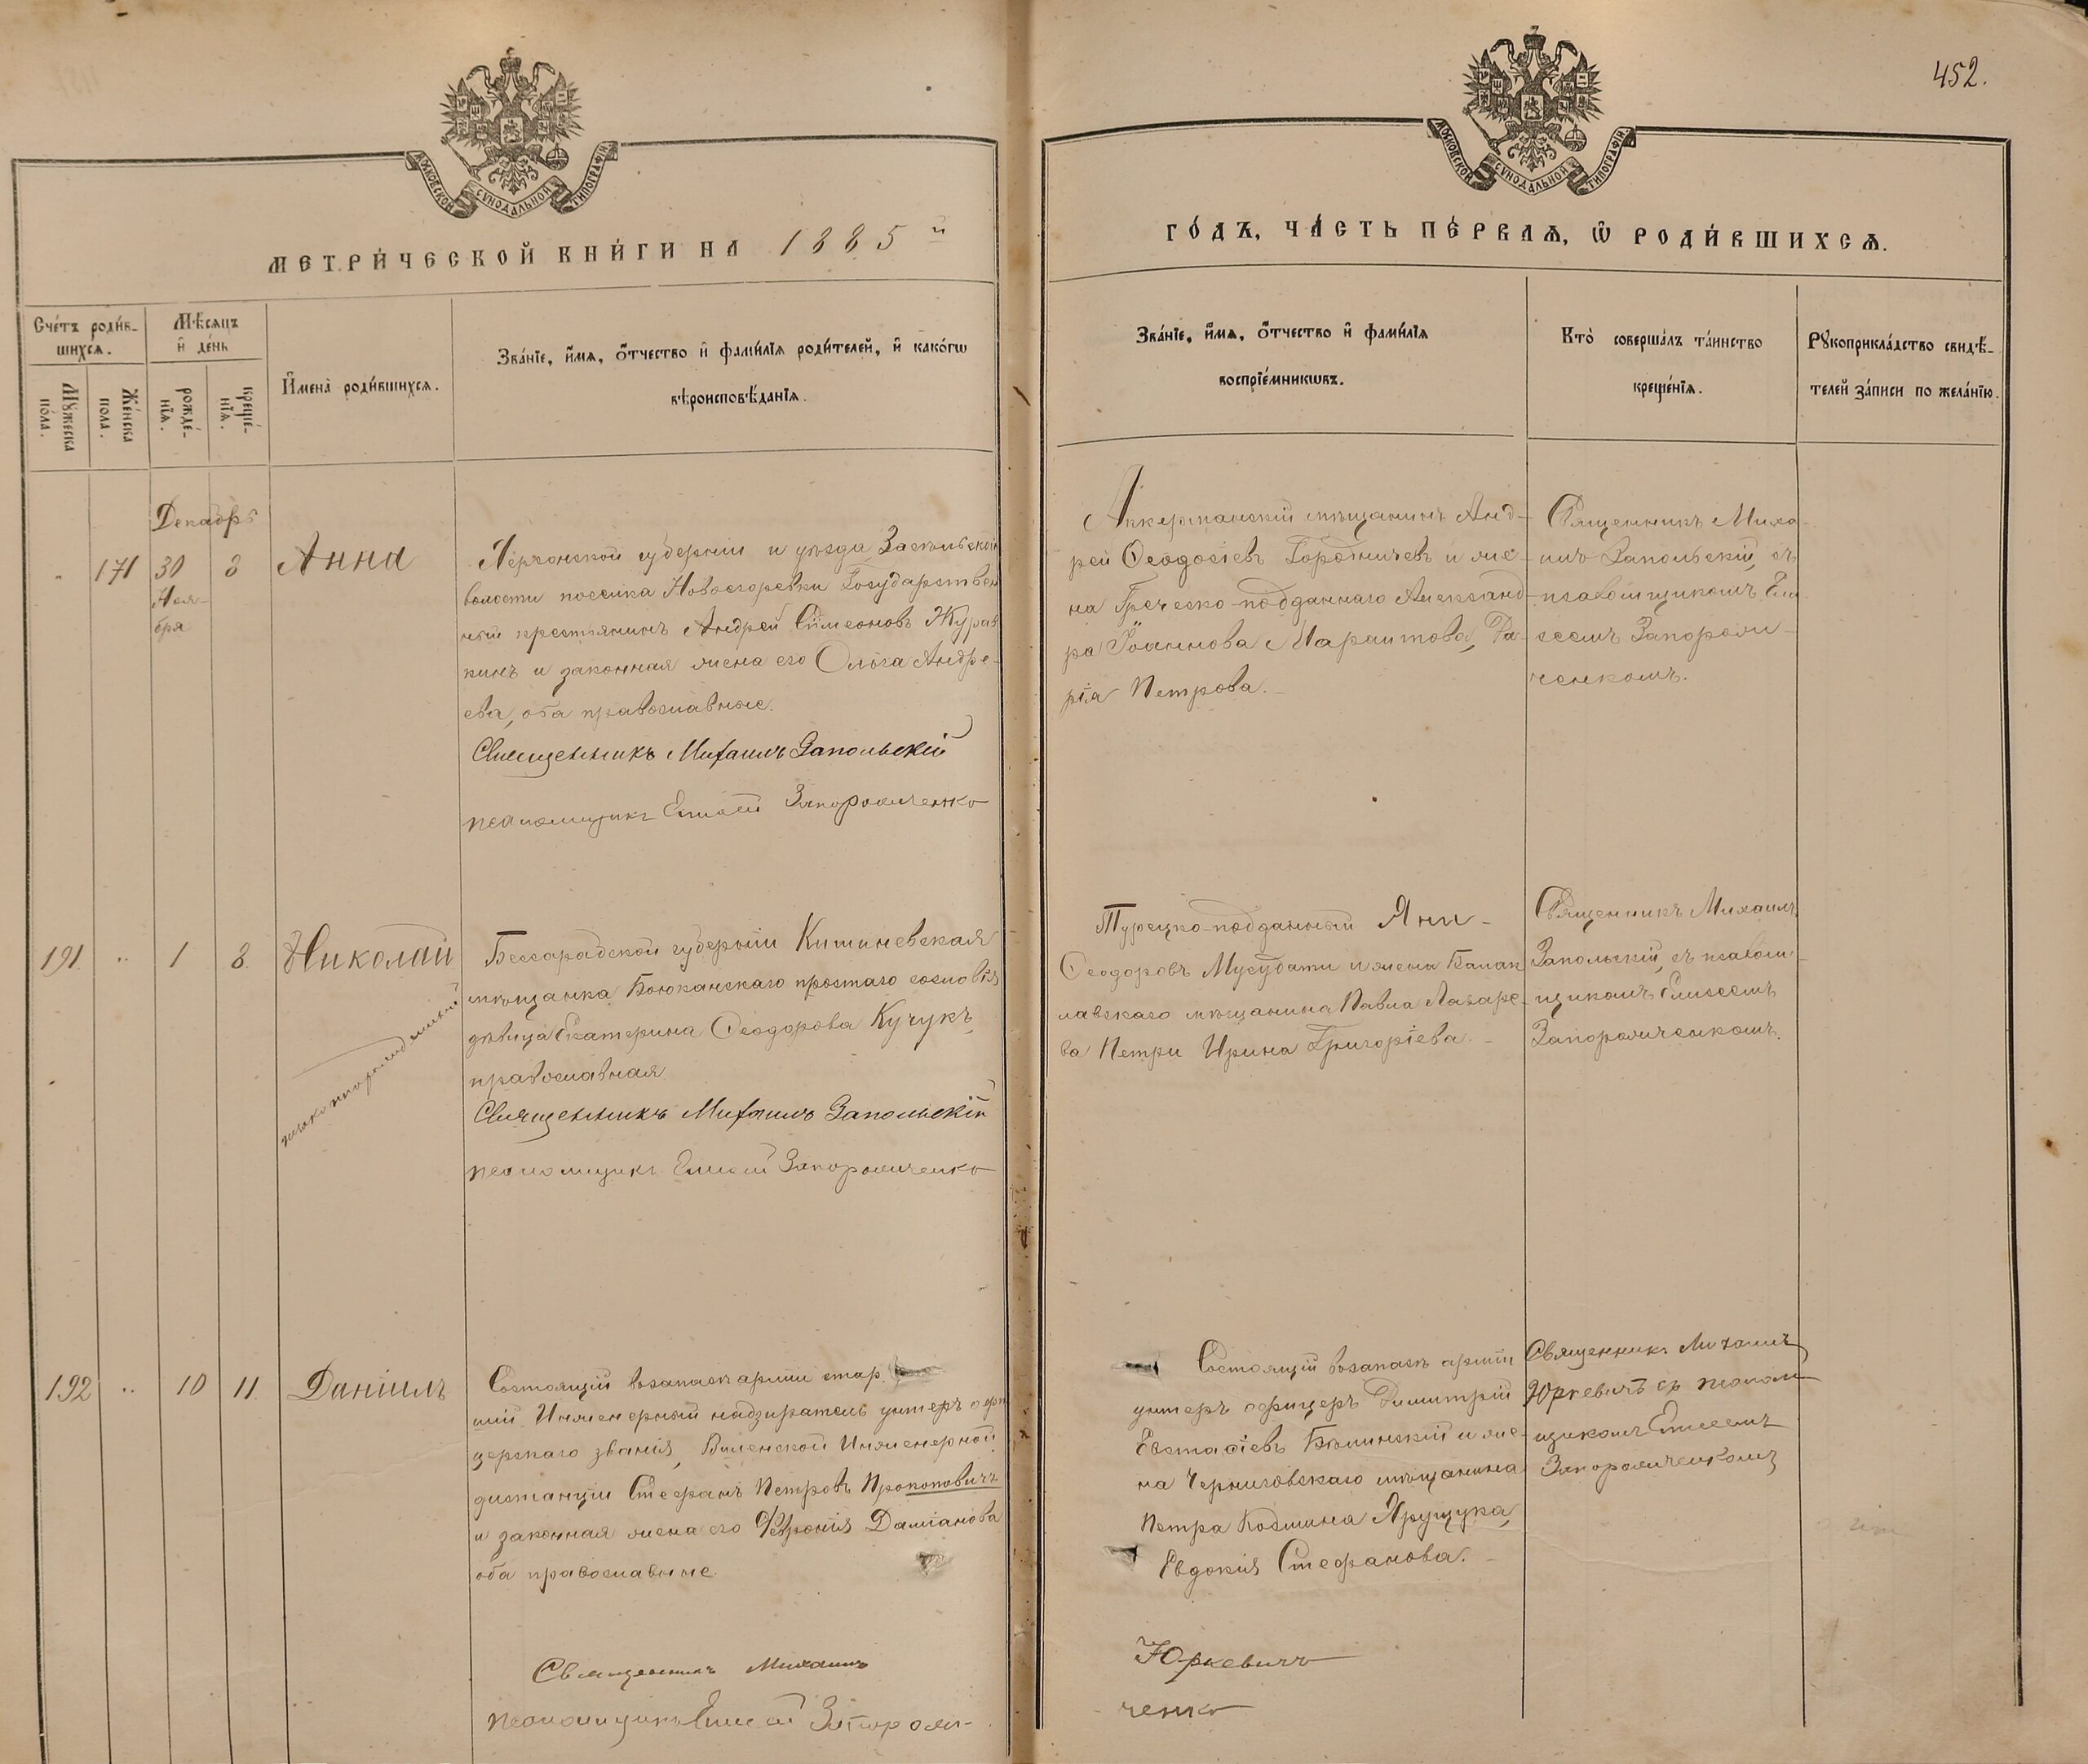 452.
МОСКОВСКОЙ СѴНОДАЛЬНОЙ ТИПОГРАФІИ
МОСКОВСКОЙ СѴНОДАЛЬНОЙ ТИПОГРАФІИ
МЕТРИ́ЧЕСКОЙ КНИ́ГИ НА 1885 й
ГО́ДЪ, ЧА́СТЬ ПЕ́РВАѦ, Ѽ РОДИ́ВШИХСѦ.
Сче́тъ роди́в-
шихсѧ.
Мѣ́сѧцъ
и҆ де́нь
Мꙋ́жеска
по́ла.
Же́нска
пола.
рожде́-
нїѧ.
креще́-
нїѧ.
И҆мена̀ роди́вшихсѧ.
Зва́нїе, и҆́мѧ, ѻ҆́тчество и҆ фамѝлїѧ роди́телей, и҆ како́гѡ
вѣроисповѣ́данїѧ.
Зва́нїе, и҆́мѧ, ѻ҆́тчество и҆ фамѝлїѧ
воспрїе́мникѡвъ.
Кто̀ соверша́лъ та́инство
креще́нїѧ.
Рꙋкоприкла́дство свидѣ́-
телей за́писи по жела́нїю.
Декабрь
171 30 3 Анна
Ноя-
бря
Херсонской губерніи и уѣзда Засельской
волости поселка Новоегоревки Государствен
ный крестьянинъ Андрей Сѵмеоновъ Журав
кинъ и законная жена его Ольга Андре-
ева, оба православные.
Священникъ Михаилъ Запольскій
псаломщикъ Елисей Запорожченко
Аккерманскій мѣщанинъ Анд-
рей Ѳеодосіевъ Городничевъ и же-
на Греческо-подданнаго Александ-
ра Іоаннова Мараитова, Да-
рія Петрова.
Священникъ Миха-
илъ Запольскій, съ
псаломщикомъ Ели
сеемъ Запорож-
ченкомъ.
191 " 1 8. Николай
незаконнорожденный
Бессарабской губерніи Кишиневская
мѣщанка Боюканскаго простаго сословія
дѣвица Екатерина Ѳеодорова Кучукъ,
православная
Священникъ Михаилъ Запольскій
псаломщикъ Елисей Запорожченко
Турецко-подданный Яни
Ѳеодоровъ Мусубати и жена Балак
лавскаго мѣщанина Павла Лазаре-
ва Петри Ирина Григоріева.
Священникъ Михаилъ
Запольскій, съ псалом-
щикомъ Елисеемъ
Запорожченкомъ.
192 " 10 11. Даніилъ
Состоящій въ запасѣ арміи стар
шій Инженерный надзиратель унтеръ офи
церскаго званія, Виленской Инженерной
дистанціи Стефанъ Петровъ Прокоповичъ
и законная жена его Февронія Даміанова
оба православные
Священникъ Михаилъ
псаломщикъ Елисей Запорож-
Состоящій въ запасѣ арміи
унтеръ офицеръ Димитрій
Евстафіевъ Бѣлинскій и же-
на Черниговскаго мѣщанина
Петра Козмина Хрущука,
Евдокія Стефанова.
Юркевичъ
ченко
Священникъ Михаилъ
Юркевичъ съ псалом-
щикомъ Елисеемъ
Запорожченкомъ